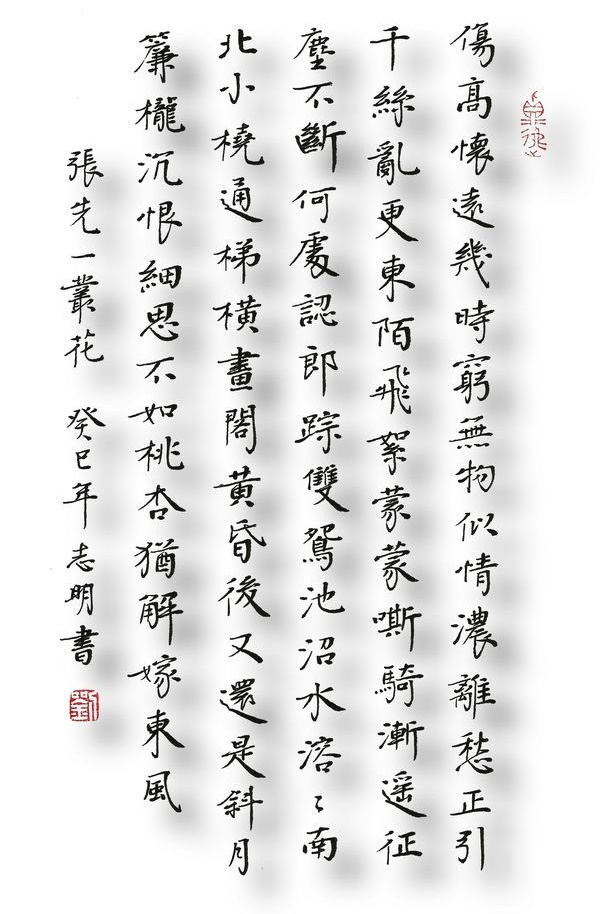 傷高懷遠幾時窮無物似情濃離愁正引
千絲亂更東陌飛絮蒙蒙嘶騎漸遥征
塵不斷何處認郎踪雙鴛池沼水溶〻南
北小橈通梯橫畫閣黃昏後又還是斜月
簾櫳沉恨細思不如桃杏猶解嫁東風
張先一叢花 癸巳年志明書
劉